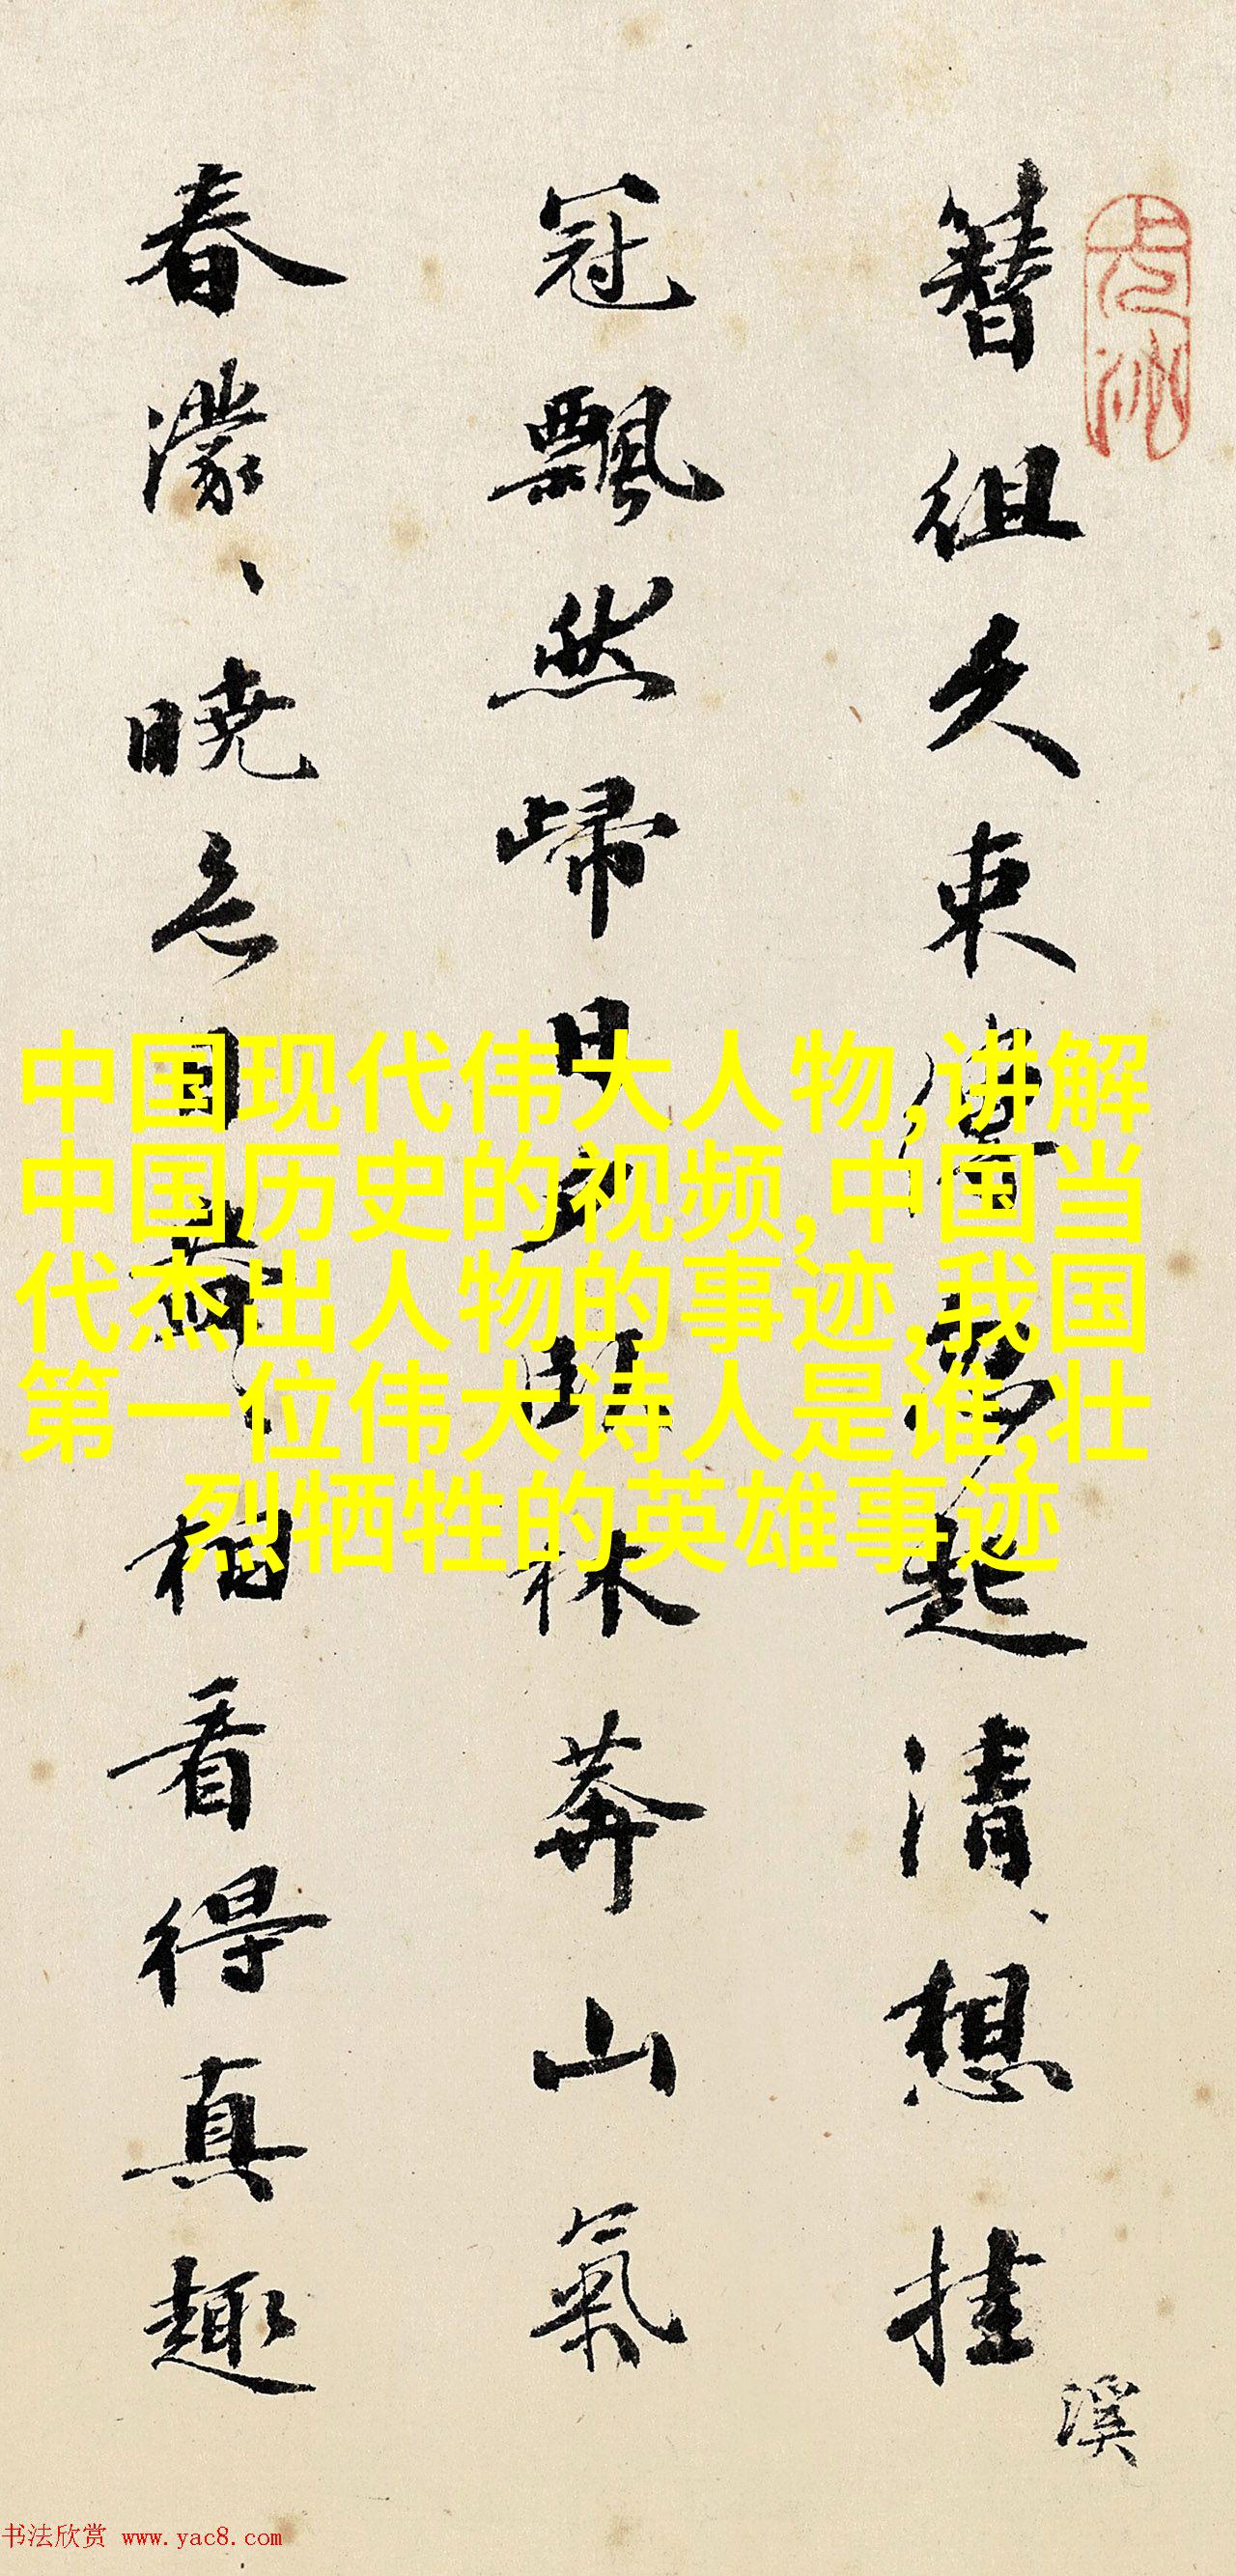 簪組久束起清、想挂
溪
冠飄然歸日林莽山氣
春濛、曉相看得真趣
中国现代伟大人物,讲解
中国历史的视频,中国当
代杰出人物的事迹,我国
第一位伟大诗人是谁,壮
烈牺牲的英雄事迹
书法欣赏 www.yac8.com